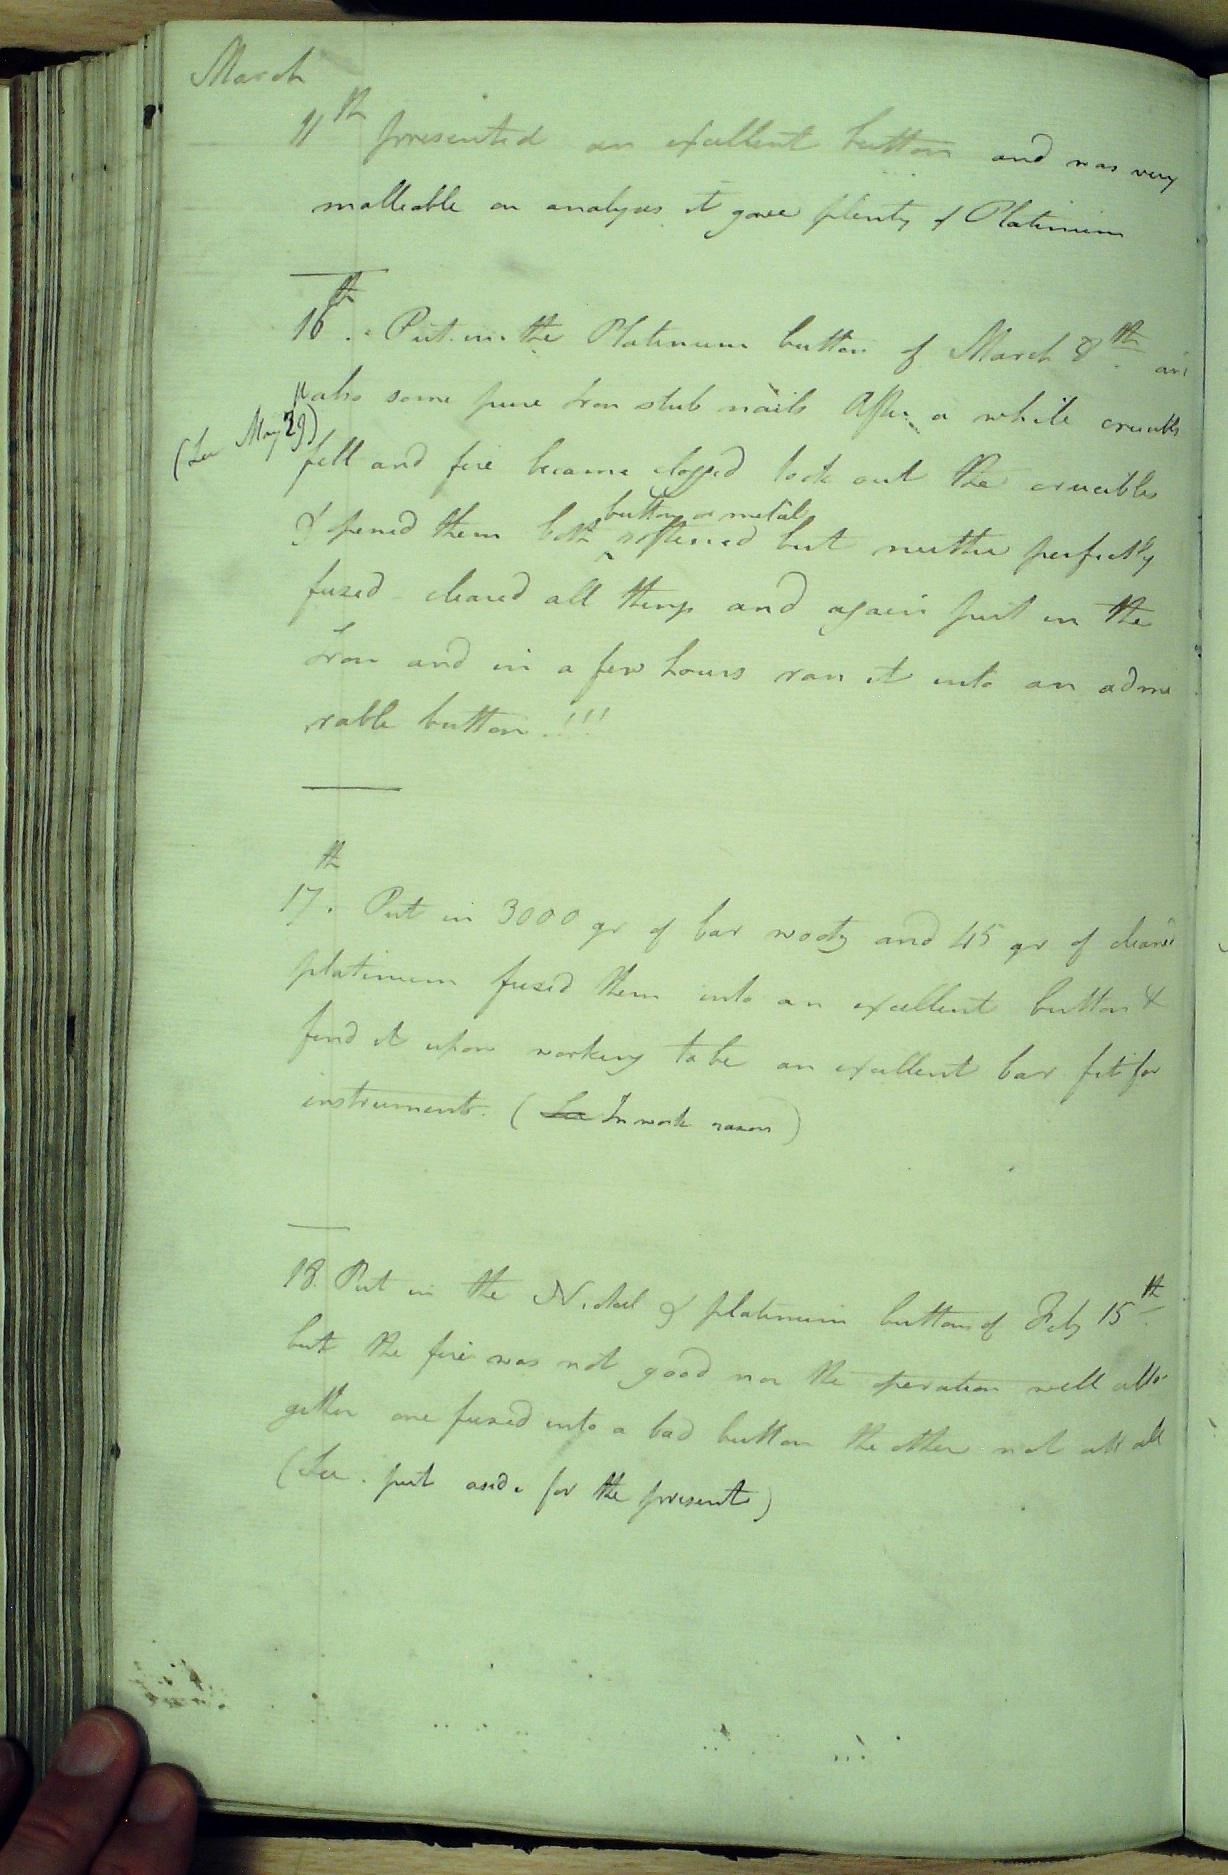 March
11th presented an excellent button and was very
malleable on analysis it gave plenty of Platinum
16th. Put in the Platinum button of March 8th and
also some pure Iron stub nails After a while crucible
(See May 29)
fell and fire became clogged took out the crucibles
& opened them both softened but neither perfectly
button or metals
fused - cleared all things and again put in the
Iron and in a few hours ran it into an admi
rable button !!!
17th. Put in 3000 gr of bar wootz and 45 gr of clean
platinum fused them into an excellent button &
find it upon working to be an excellent bar fit for
instruments. (See In work razors)
18. Put in the Nickel & platinum buttons of Feby 15th
but the fire was not good nor the operation well alto
gether one fused into a bad button the other not at all
(See. put aside for the present)